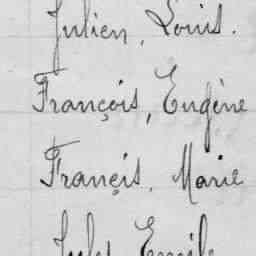 Julien, Louis.
François, Eugène
Françis, Marie
Jules Emile